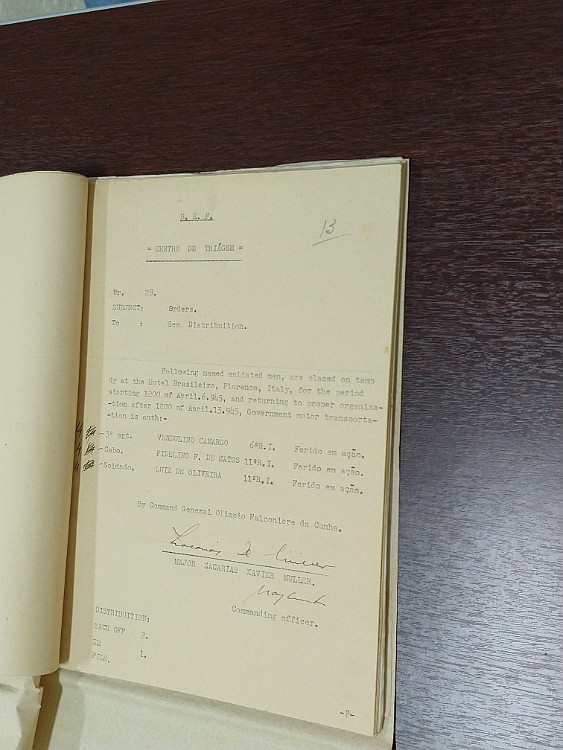 13
= CENTRO DE TRIÁGEM =
Nr. 28.
SUBJECT: Orders.
To : See Distribuition.
Following named enlisted men, are placed on temp
dy at the Hotel Brasileiro, Florence, Italy, for the period
starting 1200 of April.6.945, and returning to proper organiza-
-tion after 1200 of April.13.945, Government motor transporta-
-tion is auth:-
-3º sgt. VERDULINO CAMARGO 6ºR.I. Ferido em ação.
-Cabo. FIDELINO F. DE MATOS 11ºR.I. Ferido em ação.
-Soldado. LUIZ DE OLIVEIRA 11ºR.I. Ferido em ação.
By Command General Olimpio Falconiere da Cunha.
MAJOR ZACARIAS XAVIER MULLER.
Commanding officer.
DISTRIBUITION:
EACH OFF 2.
FILE. 1.
-P-